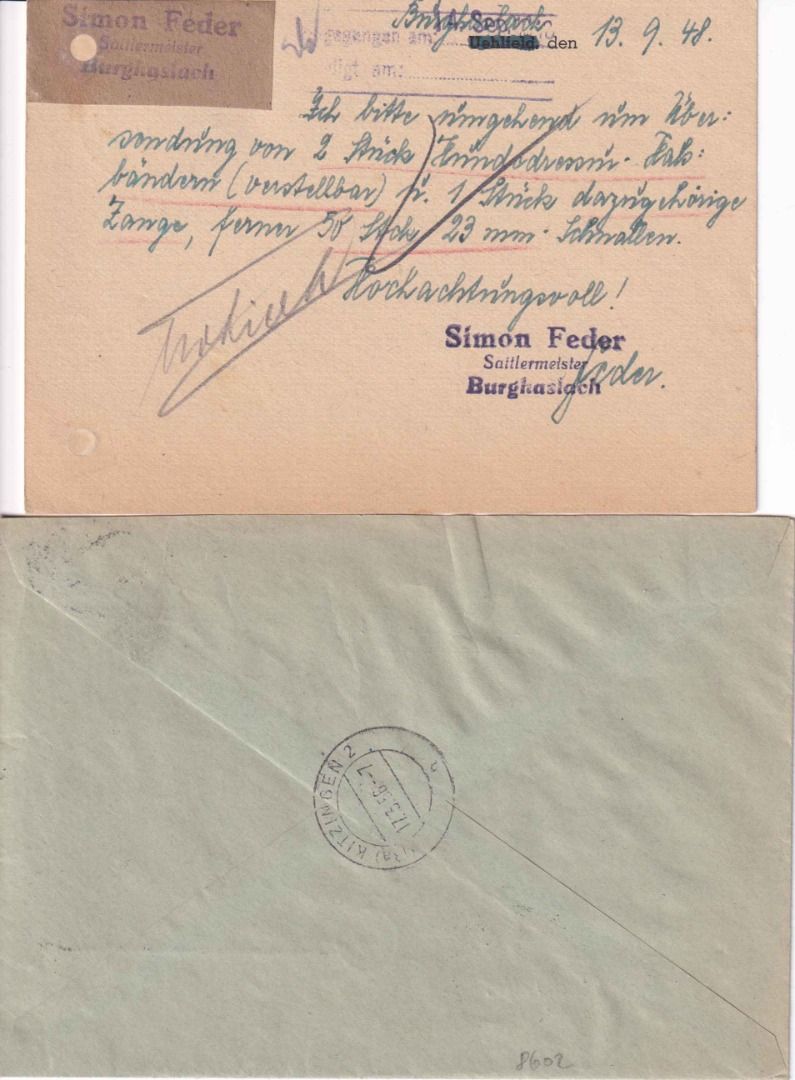 Simon Feder
Sattlermeister
Burghaslach
Burghaslach
Uehlfeld, den 13. 9. 48.
gegangen am
digt am:
Ich bitte umgehend um Über:
sendung von 2 Stück Hundedressur- Hals:
bändern (verstellbar) u. 1 Stück dazugehörige
Zange, ferner 50 Stck 23 mm- Schnallen.
Hochachtungsvoll!
Simon Feder
Sattlermeister
Burghaslach
Feder.
KITZINGEN 2
17.3.56.-7
8602